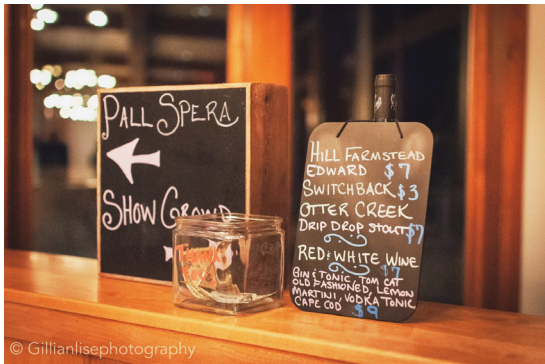 PALL SPERA
SHOW CROWD
HILL FARMSTEAD
EDWARD $7
SWITCHBACK $3
OTTER CREEK
DRIP DROP STOUT $7
RED & WHITE WINE
$7
GIN & TONIC, TOM CAT
OLD FASHIONED, LEMON
MARTINI, VODKA TONIC
CAPE COD $9
© Gillianlisephotography